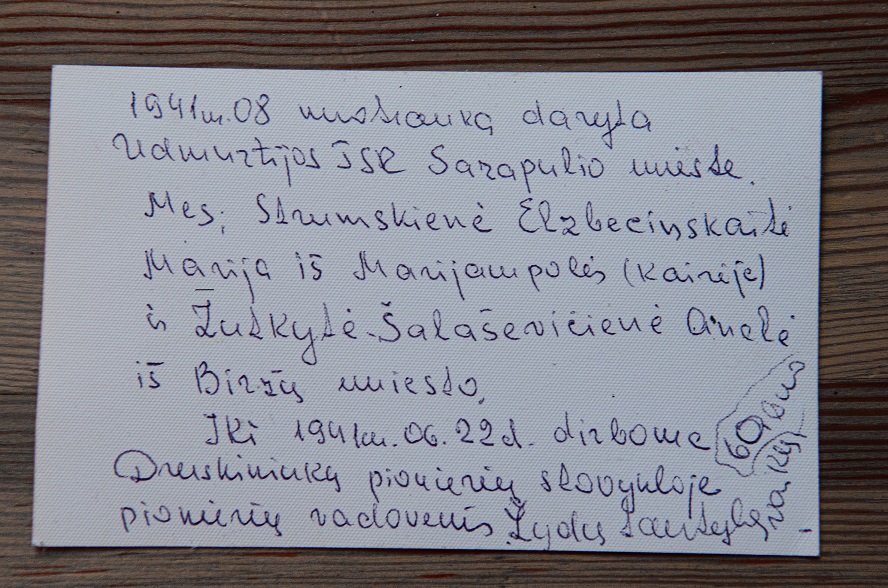 1941m.08 nuotrauką daryta
Udmurtijos TSR Sarapulio mieste.
Mes; Strumskienė Elzbecinskaitė
Marija iš Marijampolės (kairėje)
ir Žutkytė-Šalaševičienė Anelė
iš Biržų miesto,
Iki 1941m.06.22d. dirbome
Druskininkų pionierių stovykloje
pionierių vadovėmis Žydų tautybės
60
vaikų